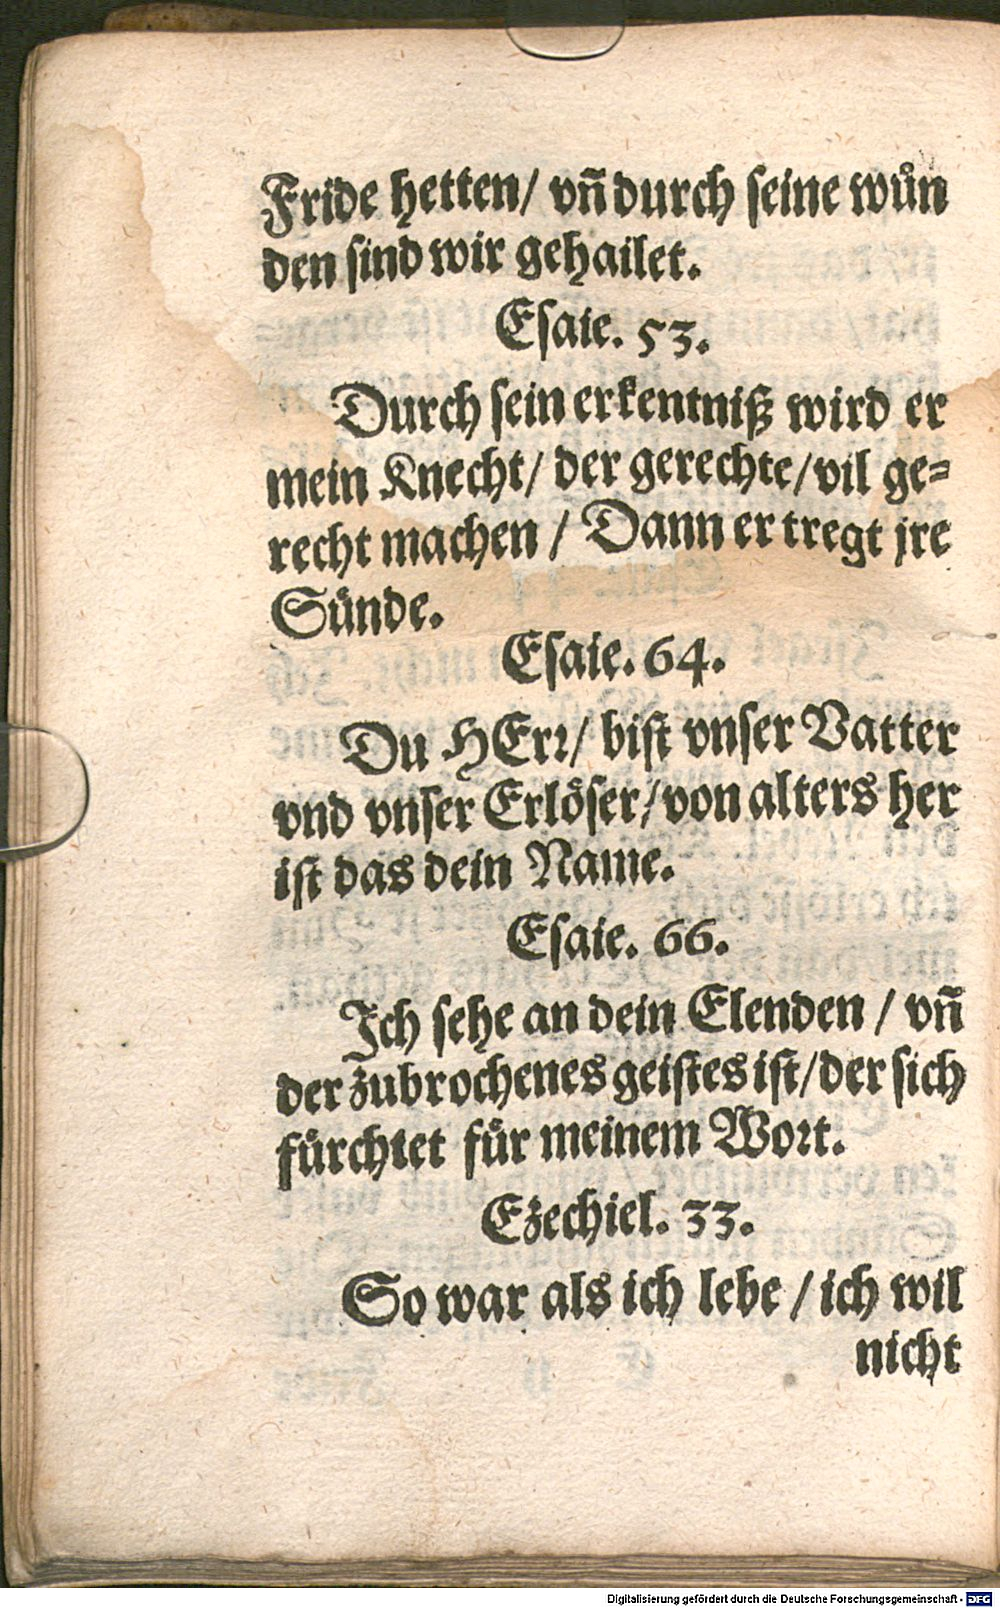 Fride hetten/ vn̄ durch seine wůn
den sind wir gehailet.
Esaie. 53.
Durch sein erkentniß wird er
mein Knecht/ der gerechte/ vil ge=
recht machen / Dann er tregt jre
Sünde.
Esaie. 64.
Du HErr/ bist vnser Vatter
vnd vnser Erlöser/ von alters her
ist das dein Name.
Esaie. 66.
Ich sehe an dein Elenden / vn̄
der zubrochenes geistes ist/ der sich
fürchtet für meinem Wort.
Ezechiel. 33.
So war als ich lebe / ich wil
nicht
Digitalisierung gefördert durch die Deutsche Forschungsgemeinschaft - DFG